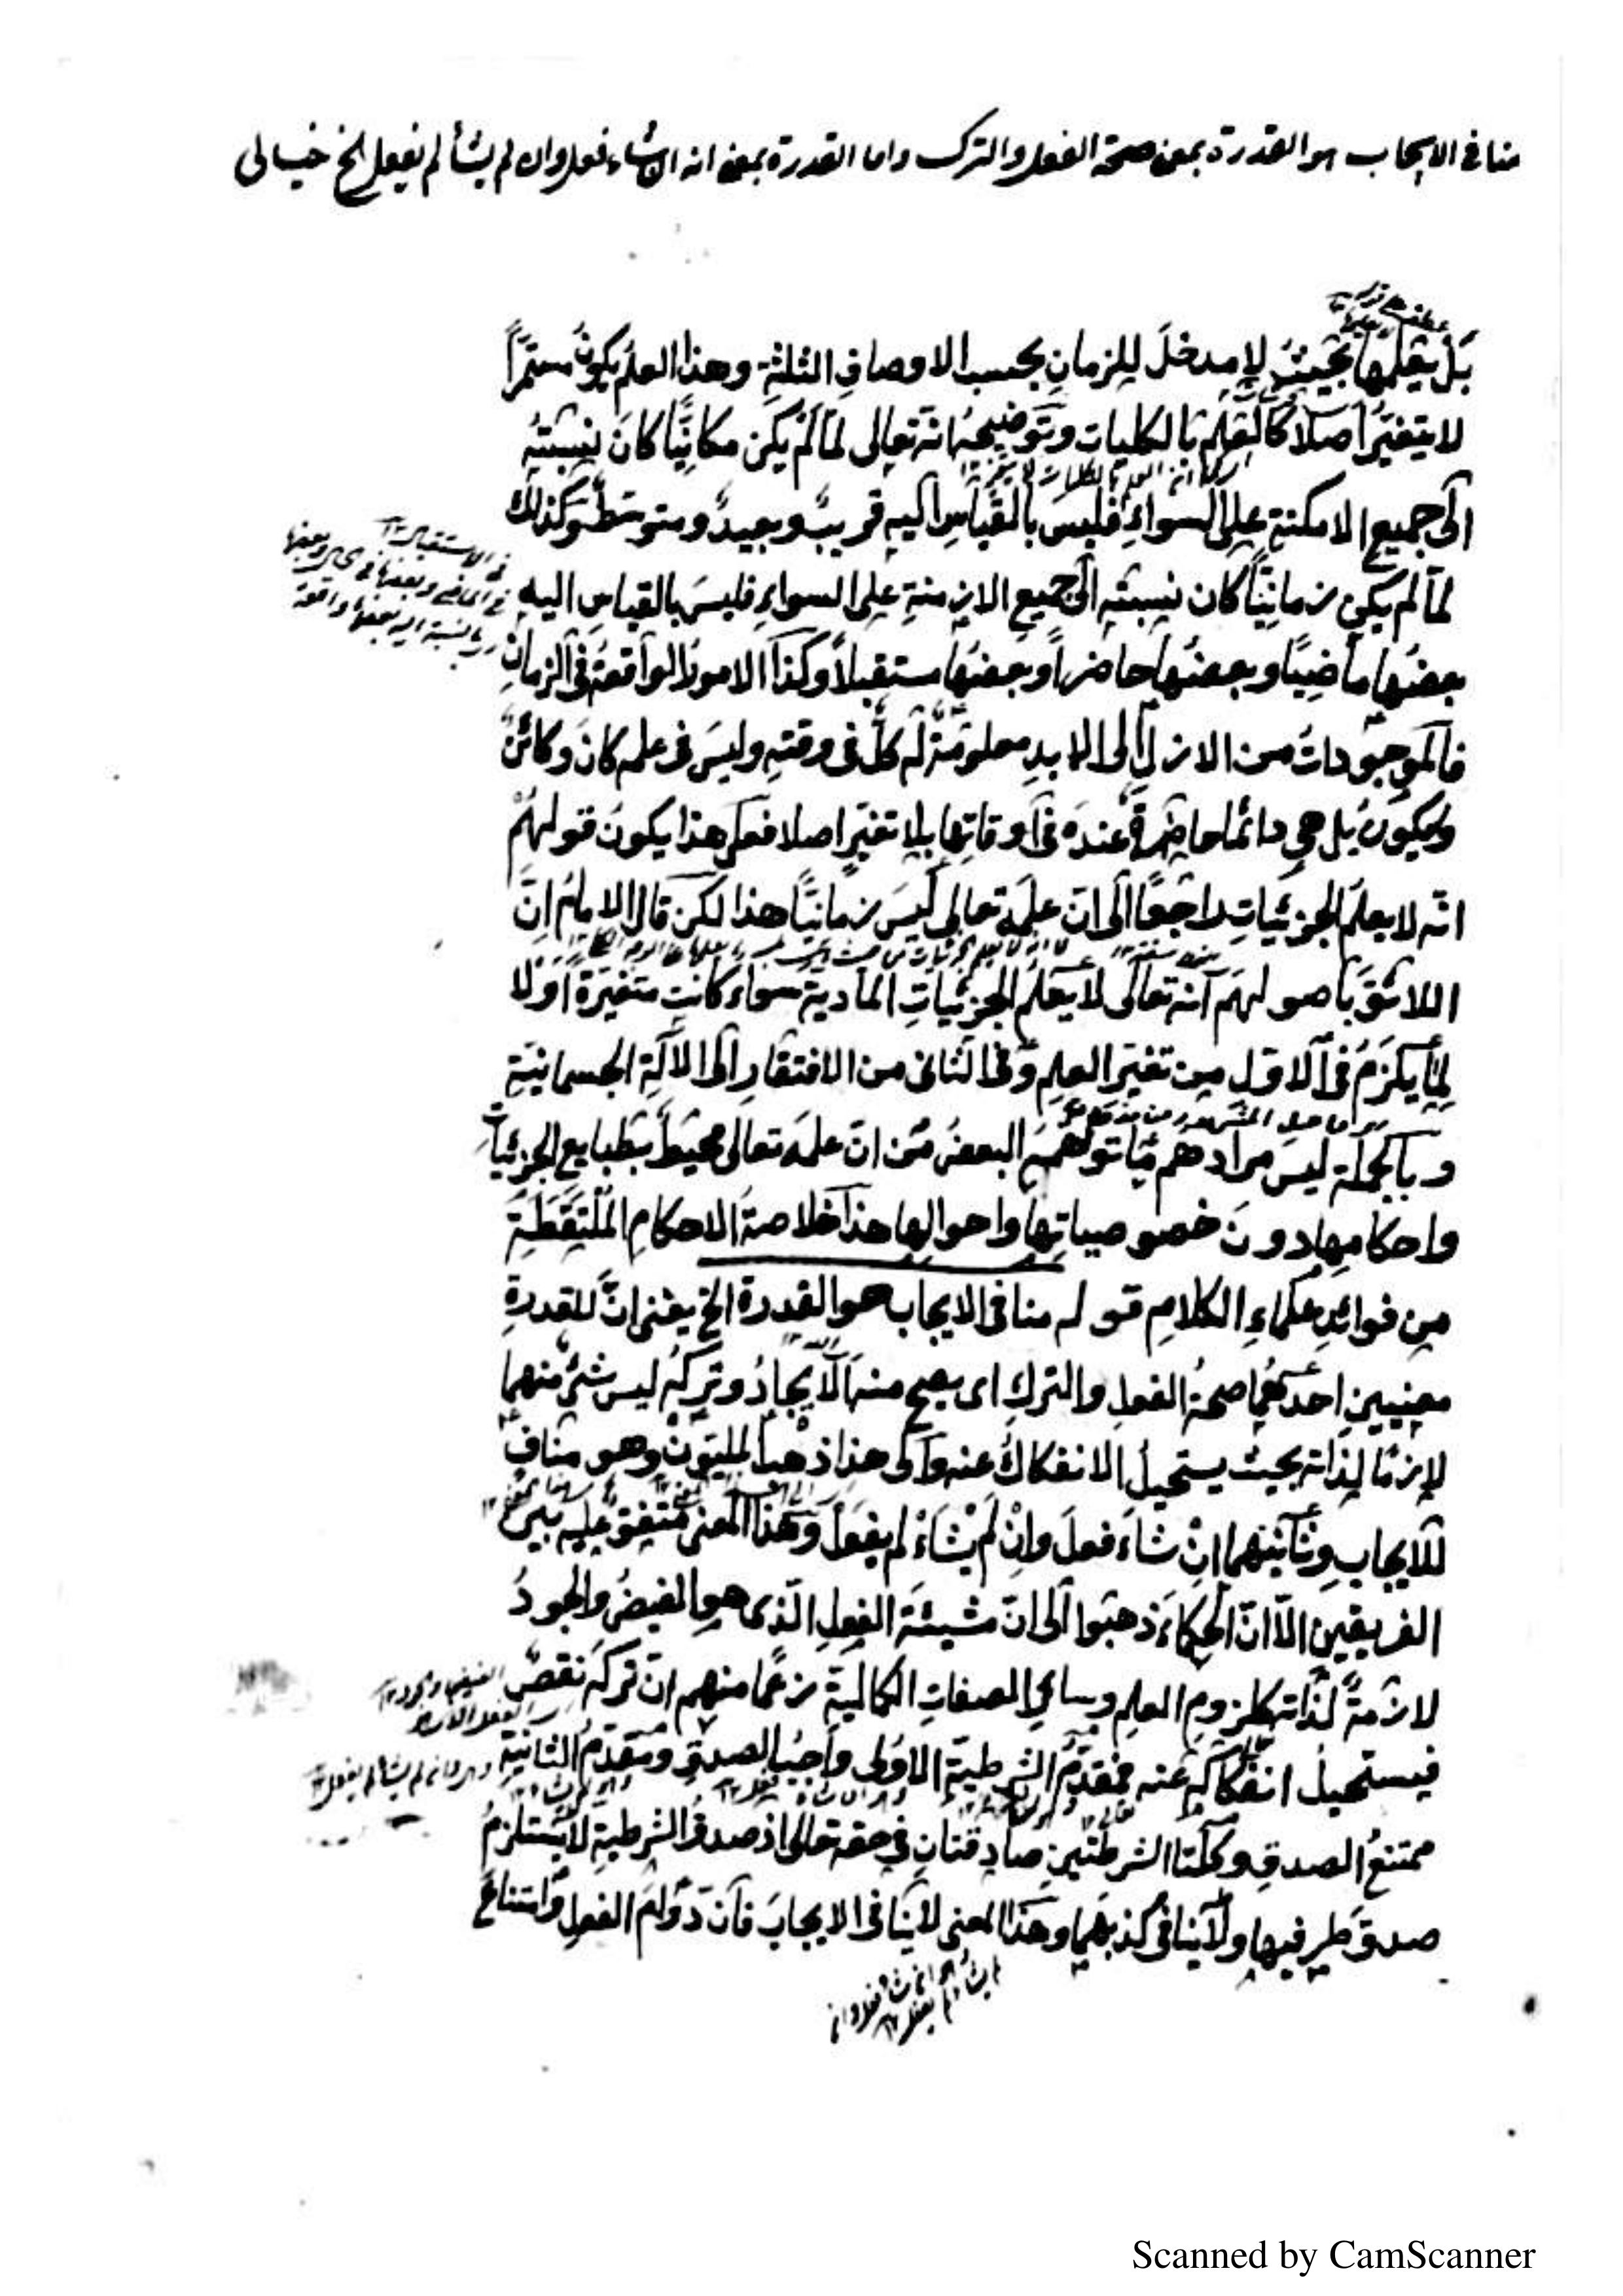 منافى الايجاب هو القدرة بمعنى صحة الفعل والترك واما القدرة بمعنى انه ان شاء فعل وان لم يشأ لم يفعل الخ خيالى
بل يعلمها بحيث لا مدخل للزمان بحسب الاوصاف الثلثة وهذا العلم يكون مستمرًا
لا يتغير اصلا كالعلم بالكليات وتوضيحه انه تعالى لما لم يكن مكانيًا كان نسبته
الى جميع الامكنة على السواء فليس بالقياس اليه قريب وبعيد ومتوسط وكذلك
لما لم يكن زمانيًا كان نسبته الى جميع الازمنة على السواء فليس بالقياس اليه
بعضها ماضيًا وبعضها حاضرًا وبعضها مستقبلا وكذا الامور الواقعة فى الزمان
فالموجودات من الازل الى الابد معلومة له كل فى وقته وليس فى علمه كان وكائن
ويكون بل هى دائما حاضرة عنده فى اوقاتها بلا تغير اصلا فعلى هذا يكون قولهم
انه لا يعلم الجزئيات راجعًا الى ان علمه تعالى ليس زمانيًا هذا لكن قال الامام ان
اللائق باصولهم انه تعالى لا يعلم الجزئيات المادية سواء كانت متغيرة اولا
لما يلزم فى الاول من تغير العلم وفى الثانى من الافتقار الى الآلة الجسمانية
وبالجملة ليس مرادهم ما توهمه البعض من ان علمه تعالى محيط بطبايع الجزئيات
واحكامها دون خصوصياتها واحوالها هذا خلاصة الاحكام الملتقطة
من فوائد علماء الكلام قوله منافى الايجاب هو القدرة الخ يعنى ان للقدرة
معنيين احدهما صحة الفعل والترك اى يصح منه الايجاد وتركه ليس شئ منهما
لازمًا لذاته بحيث يستحيل الانفكاك عنه والى هذا ذهب المليون وهو مناف
للايجاب وثانيهما ان شاء فعل وان لم يشاء لم يفعل وهذا المعنى متفق عليه بين
الفريقين الا ان الحكماء ذهبوا الى ان مشيئة الفعل الذى هو الفيض والجود
لازمة لذاته كلزوم العلم وسائر الصفات الكمالية زعمًا منهم ان تركه نقص
فيستحيل انفكاكه عنه فمقدم الشرطية الاولى واجب الصدق ومقدم الثانية
ممتنع الصدق وكلتا الشرطتين صادقتان فى حقه تعالى اذ صدق الشرطية لا يستلزم
صدق طرفيها ولا ينافى كذبهما وهذا المعنى لا ينافى الايجاب فان دوام الفعل وامتناع
Scanned by CamScanner